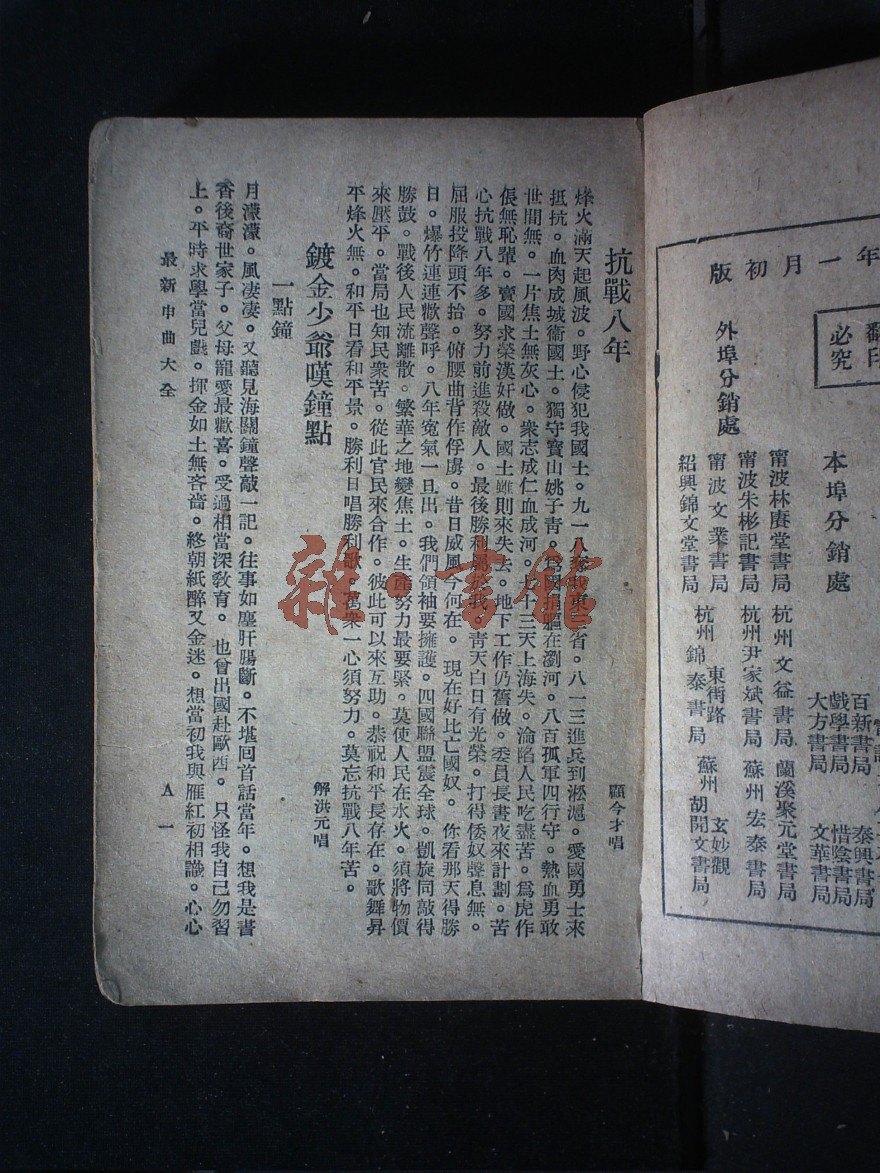 年一月初版
翻印
必究
本埠分銷處
百新書局　泰興書局
戲學書局　惜陰書局
大方書局　文華書局
外埠分銷處
甯波林赓堂書局　杭州文益書局　蘭溪聚元堂書局
甯波朱彬記書局　杭州尹家斌書局　蘇州宏泰書局
甯波文業書局　杭州東街路錦泰書局　蘇州玄妙觀胡開文書局
紹興錦文堂書局
抗戰八年
顧今才唱
烽火滿天起風波。野心侵犯我國土。九一八奪我東三省。八一三進兵到淞滬。愛國勇士來
抵抗。血肉成城衞國土。獨守寶山姚子青。爲國捐軀在瀏河。八百孤軍四行守。熱血勇敢
世間無。一片焦土無灰心。衆志成仁血成河。七十三天上海失。淪陷人民吃盡苦。爲虎作
倀無恥輩。賣國求榮漢奸做。國土雖則來失去。地下工作仍舊做。委員長晝夜來計劃。苦
心抗戰八年多。努力前進殺敵人。最後勝利屬於我。靑天白日有光榮。打得倭奴聲息無。
屈服投降頭不抬。俯腰曲背作俘虜。昔日威風今何在。現在好比亡國奴。你看那天得勝
日。爆竹連連歡聲呼。八年寃氣一旦出。我們領袖要擁護。四國聯盟震全球。凱旋同敲得
勝鼓。戰後人民流離散。繁華之地變焦土。生產努力最要緊。莫使人民在水火。須將物價
來壓平。當局也知民衆苦。從此官民來合作。彼此可以來互助。恭祝和平長存在。歌舞昇
平烽火無。和平日看和平景。勝利日唱勝利歌。萬衆一心須努力。莫忘抗戰八年苦。
鍍金少爺嘆鐘點
解洪元唱
一點鐘
月濛濛。風凄凄。又聽見海關鐘聲敲一記。往事如塵肝腸斷。不堪回首話當年。想我是書
香後裔世家子。父母寵愛最歡喜。受過相當深敎育。也曾出國赴歐西。只怪我自己勿習
上。平時求學當兒戲。揮金如土無客嗇。終朝紙醉又金迷。想當初我與雁紅初相識。心心
最新申曲大全
A一
雜·書館